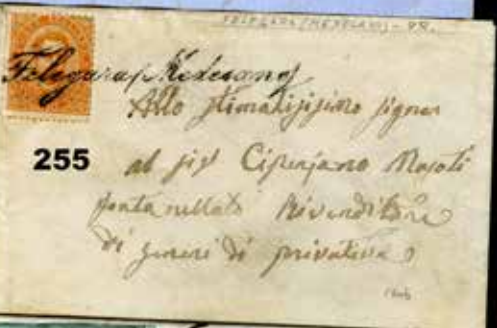 FELEGARA (MEDESANO) - PR.
Felegara p Medesano
Allo stimatijijimo signor
255
al sigr Ciprejano Majoli
fontanellato Rivenditore
di generi di privativa